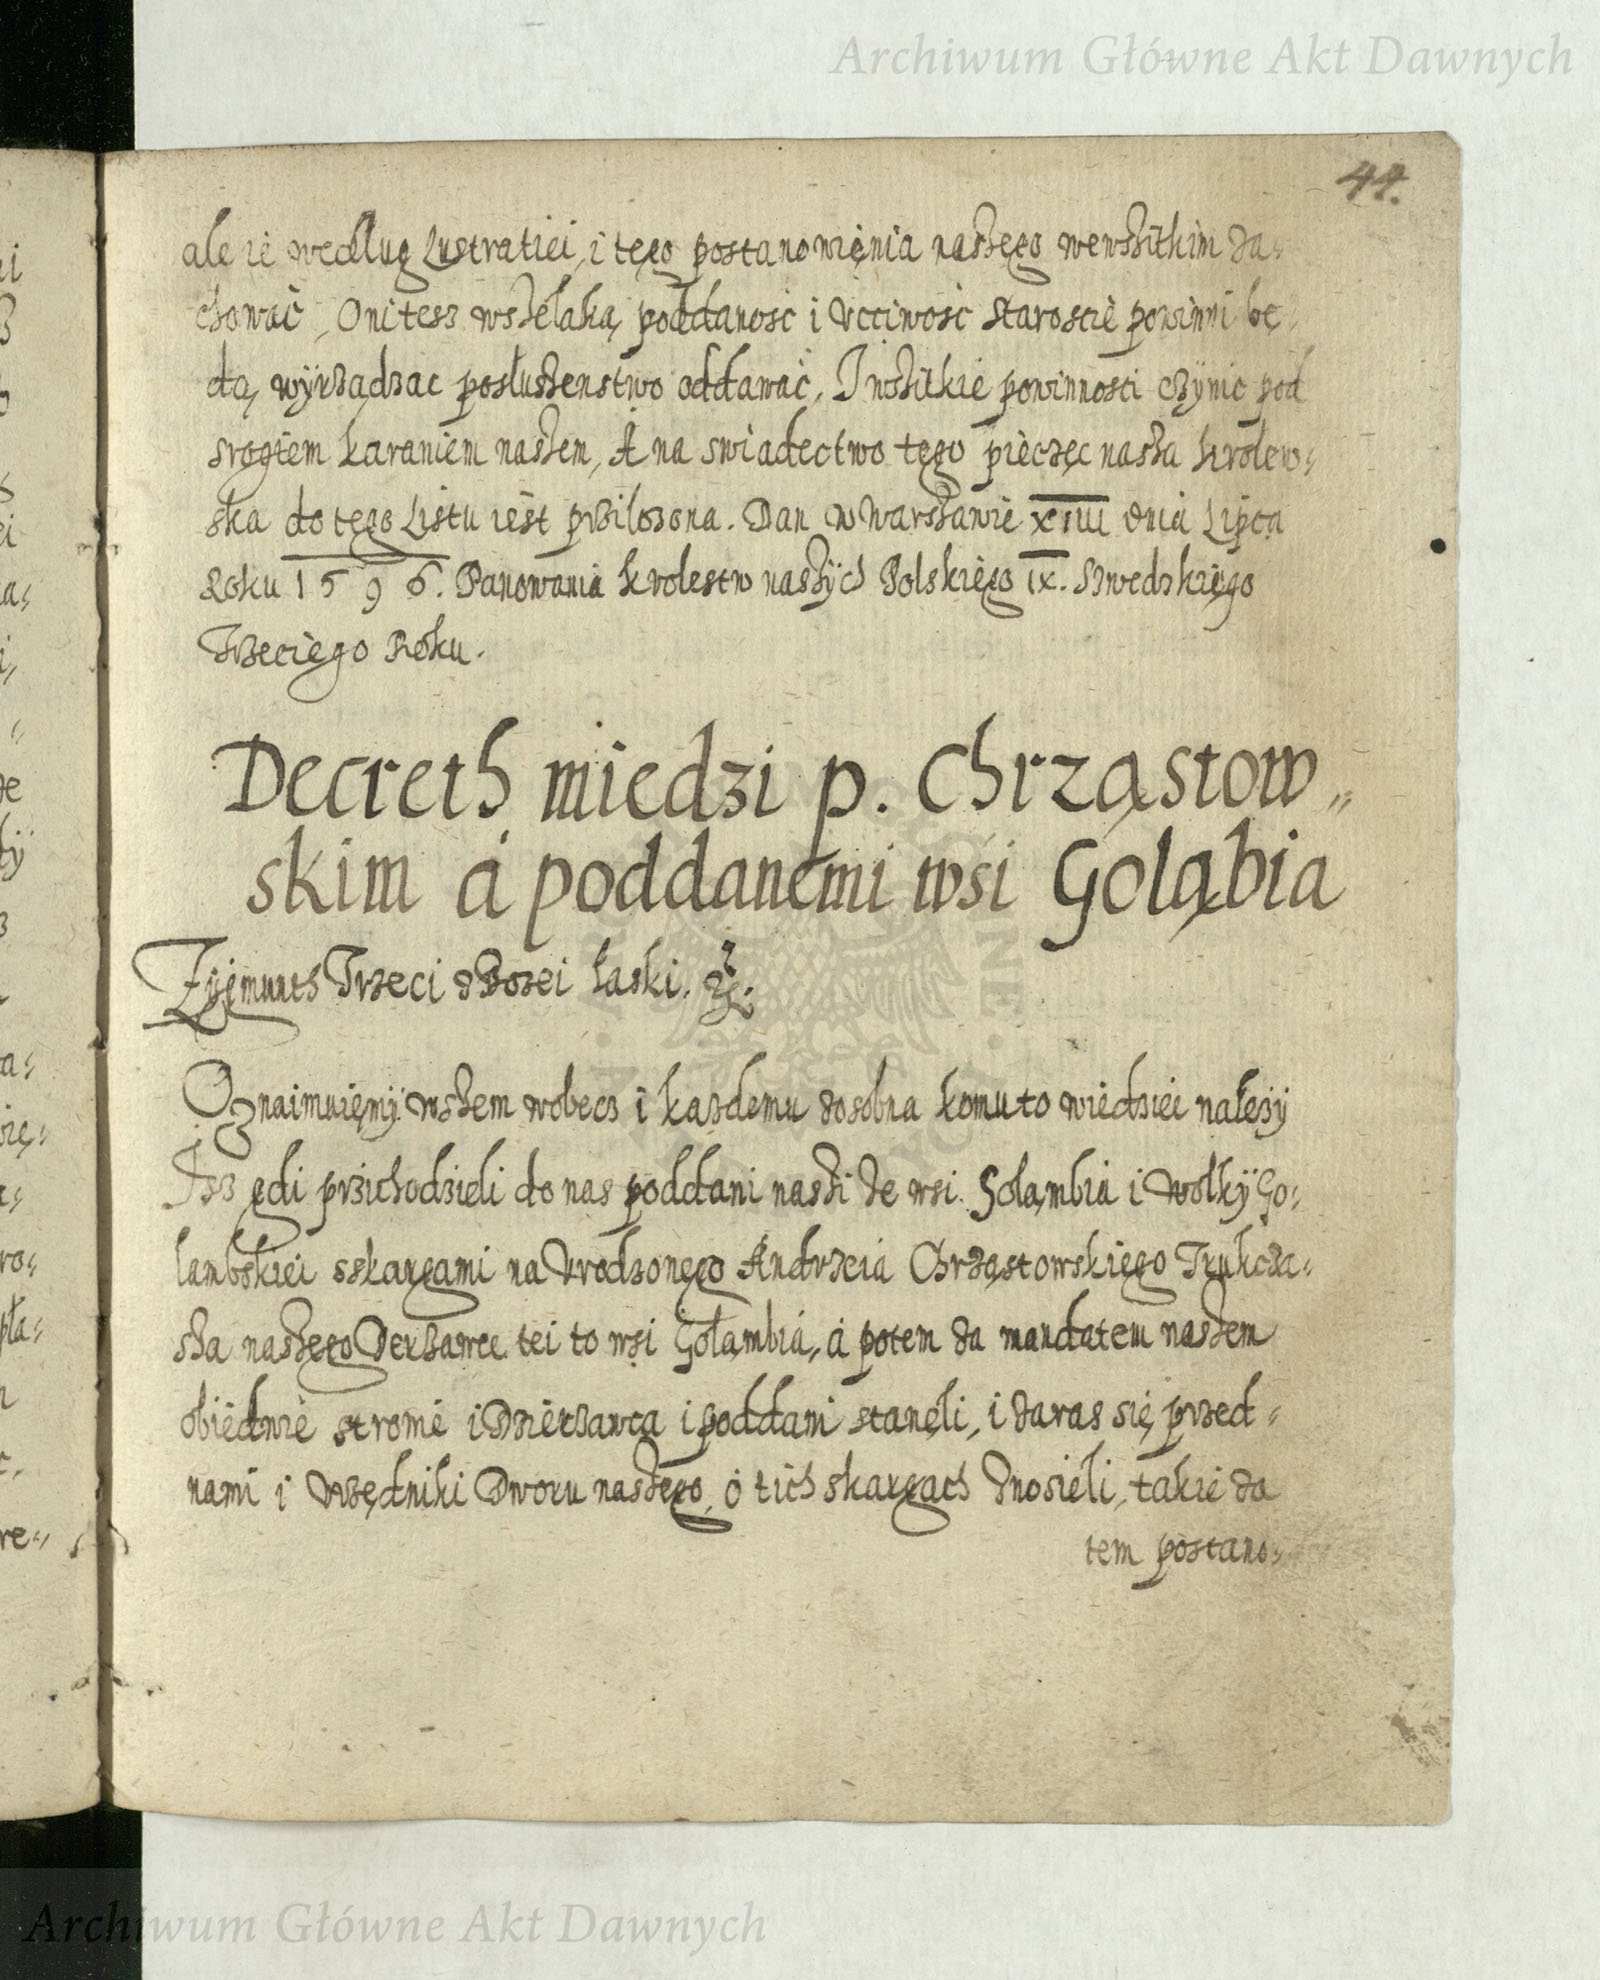 Archiwum Główne Akt Dawnych
44.
ale ie według Lustratiei, i tego postanowięnia naszego wewszitkim za-
chować, Oni tesz wszelaką poddaność i vcciwość Staroscie powinni bę-
dą, wÿrządzac posłuszenstwo oddawać, I wszitkie powinnosci czÿnic pod
srogiem karaniem naszem, A na swiadectwo tego pieczęc nasza krolew-
ska do tego Listu iest prziłozona. Dan w Warszawie XIIII dnia Lipca
Roku 1596. Panowania krolestw naszÿch Polskiego IX. Szwedzkiego
Trzeciego Roku.
Decreth miedzi p. Chrząstow-
skim á poddanemi wsi Goląbia
Zygmunth Trzeci z Bozei łaski. etc.
Oznaimuięmÿ wszem wobecz i kazdemu zosobna komu to wiedziei nalezÿ
Isz gdi przichodzieli do nas poddani naszi ze wsi Golambia i Wolkÿ Go-
lambskiei sskargami na Vrodzonego Andrzeia Chrząstowskiego Trukcza-
sza naszego Derzawce tei to wsi Golambia, á potem za mandatem naszem
obiedwie stronie i Dzierzawca i poddani stanęli, i zaras się przed-
nami i Vrzędniki Dworu naszego, o tich skargach znosieli, takie za
tem postano-
Archiwum Główne Akt Dawnych